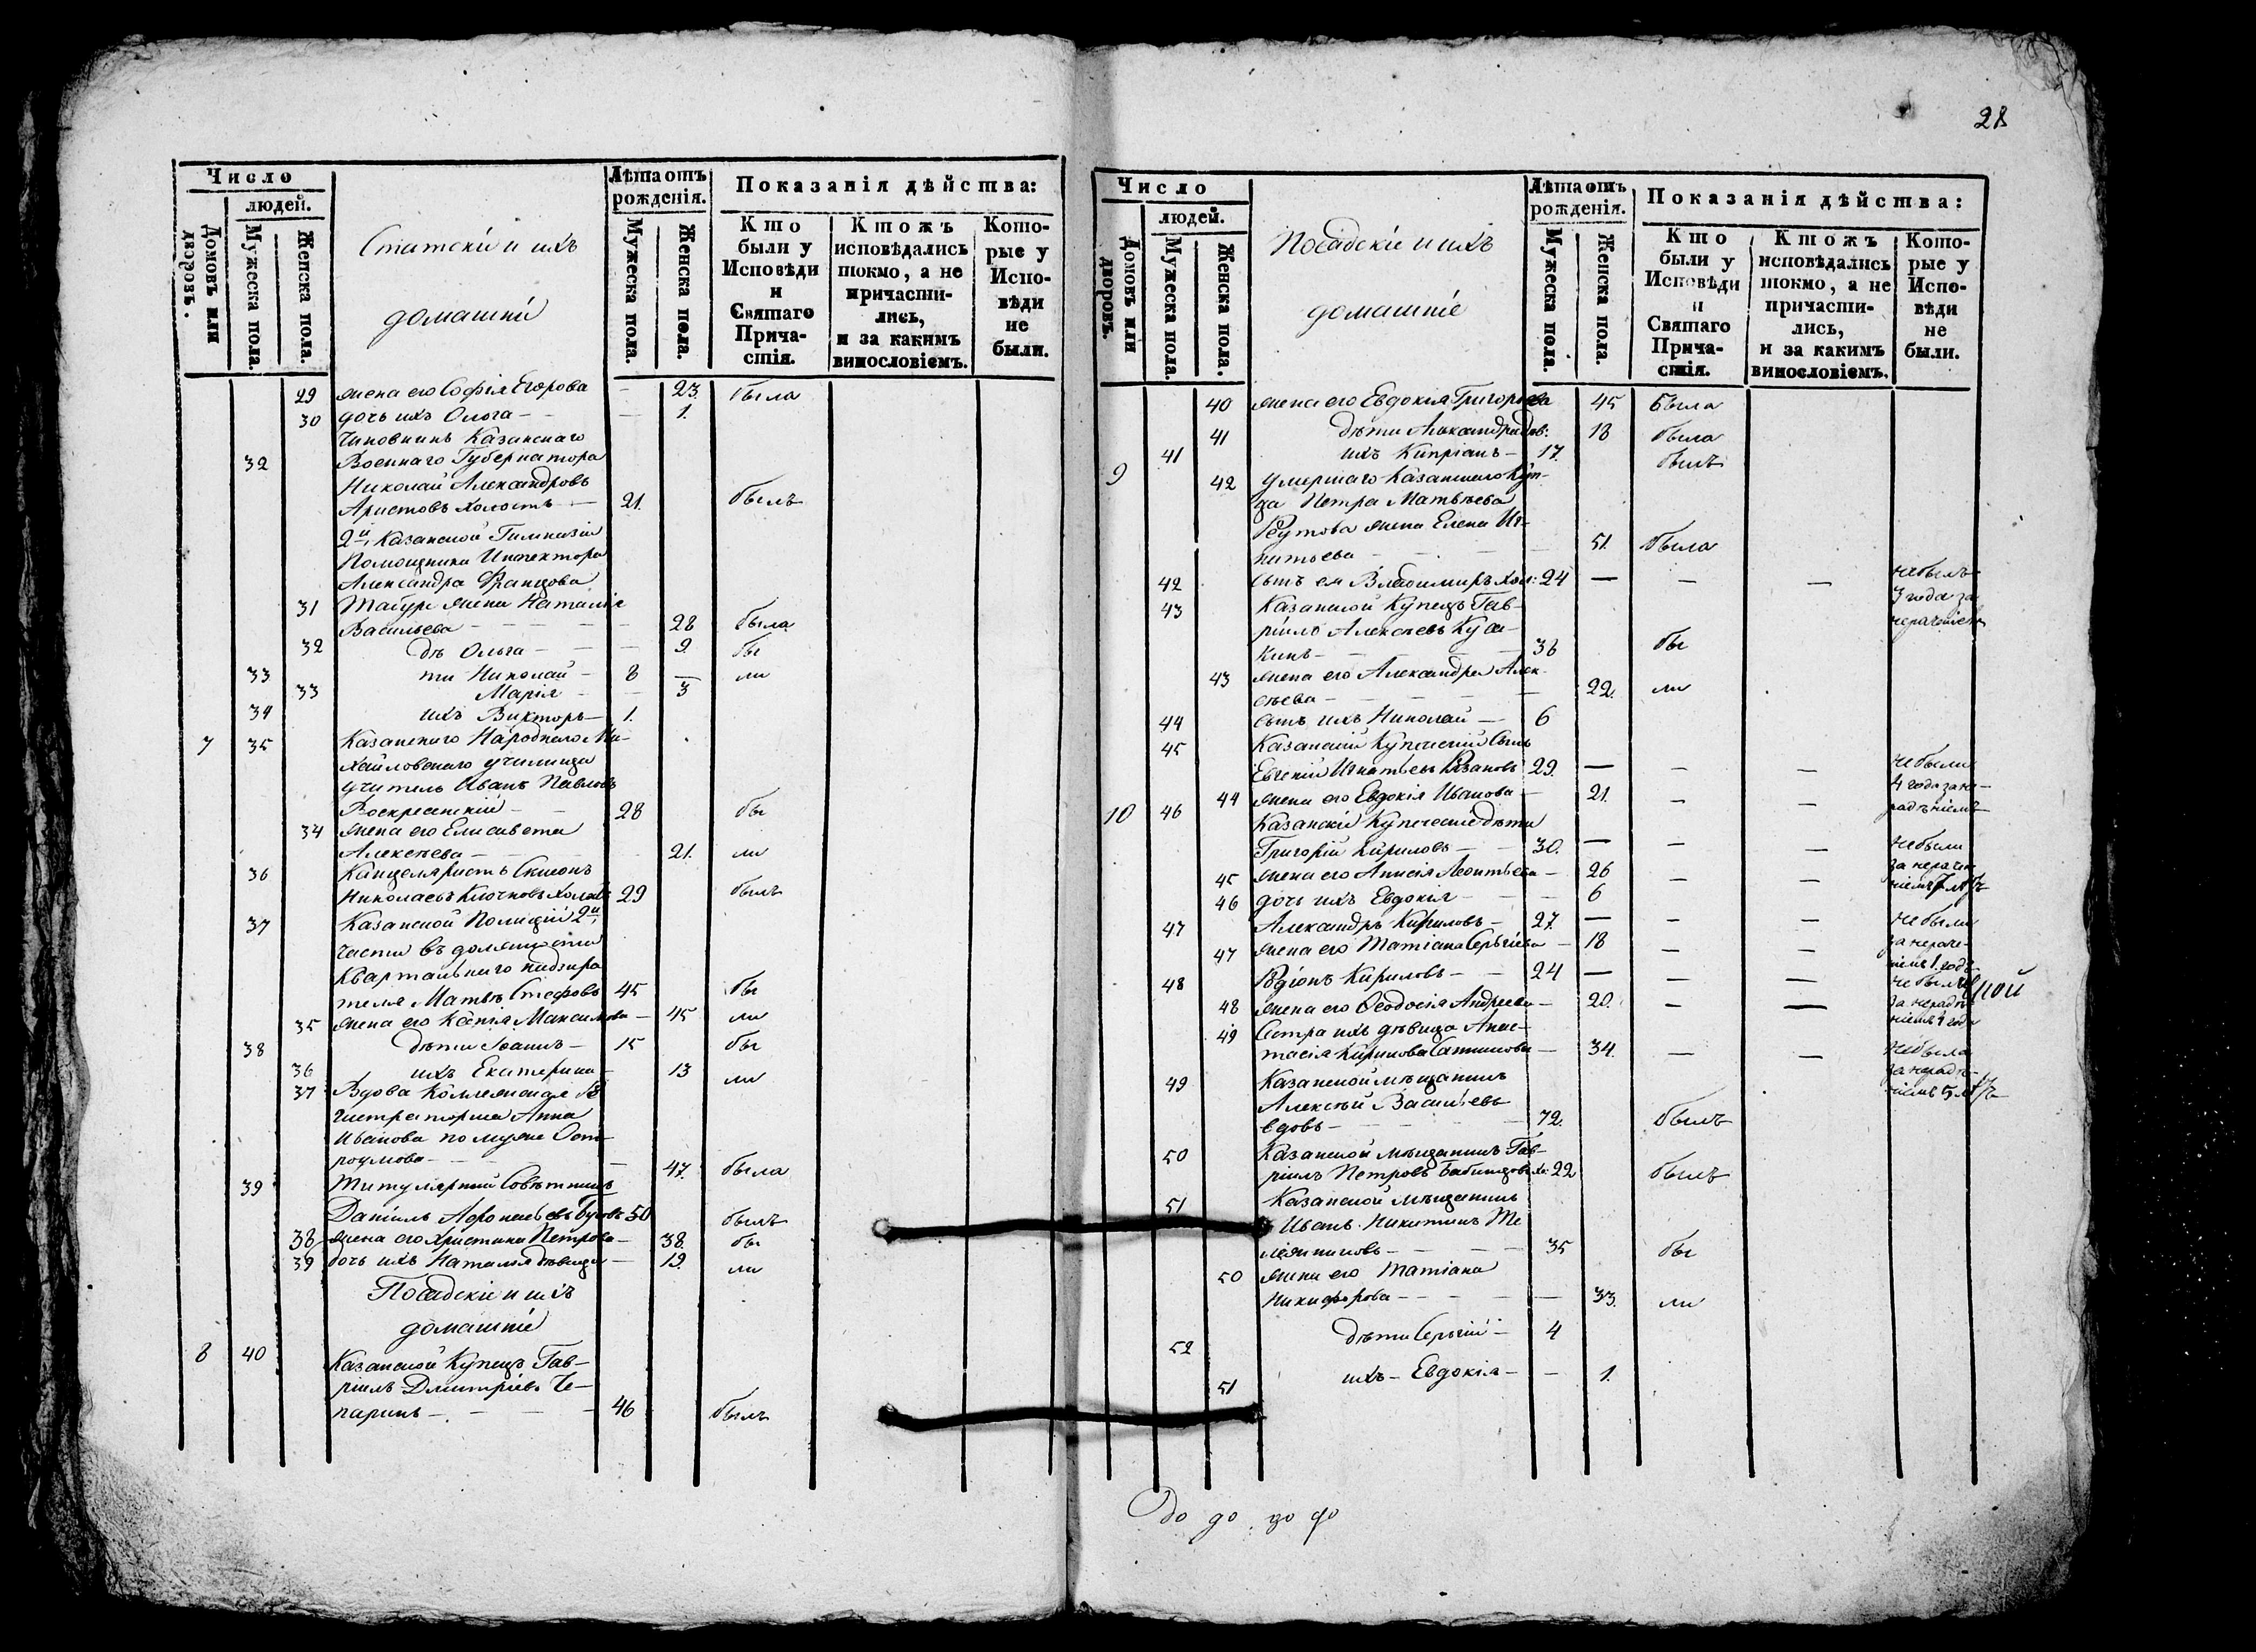 28
Число
людей.
Домовъ или дворовъ.
Мужеска пола.
Женска пола.
Статскіи и ихъ
домашніи
Лѣта отъ рожденія.
Мужеска пола.
Женска пола.
Показанія дѣйства:
Кто были у Исповѣди и Святаго Причастія.
Ктожъ исповѣдались токмо, а не причастились, и за какимъ винословіемъ.
Которые у Исповѣди не были.
29 жена его Софія Егорова — 23. была
30 дочь ихъ Ольга — — 1.
Чиновникъ Казанскаго
32 Военнаго Губернатора
Николай Александровъ
Аристовъ холостъ — 21. былъ
2й Казанской Гимназіи
Помощника Инспектора
Александра Францова
31 жена Наталія
Васильева — — 28 была
32 дѣ Ольга — — 9. бы
33 ти Николай — 8 — ли
33 Марія — — 3
34 ихъ Викторъ — 1.
7 35 Казанскаго Народнаго Ми-
хайловскаго училища
учитель Иванъ Павловъ
Воскресенскій — 28 бы
34 жена его Елисавета
Алексѣева — 21. ли
36 Канцеляристъ
Николаевъ Клочковъ холостъ 29 былъ
37 Казанской Полиціи 2й
части въ должности
Квартальнаго надзира
теля 45 бы
35 жена его Ксенія Максимова — 45 ли
38 дѣти Іоаннъ — 15 бы
36 ихъ Екатерина — 13 ли
37 Вдова Коллежскаго Ре
гистраторша Анна
Иванова по мужѣ Ост-
роумова — — 47. была
39 Титулярный Совѣтникъ
Даніилъ 50 былъ
38 жена его Христина Петрова — 38. бы
39 дочь ихъ Наталія дѣвица — 19. ли
Посадскіе и ихъ
домашніе
8 40 Казанской Купецъ Гав-
ріилъ Дмитріевъ Че-
паринъ — — — 46 былъ
Число
людей.
Домовъ или дворовъ.
Мужеска пола.
Женска пола.
Посадскіе и ихъ
домашніе
Лѣта отъ рожденія.
Мужеска пола.
Женска пола.
Показанія дѣйства:
Кто были у Исповѣди и Святаго Причастія.
Ктожъ исповѣдались токмо, а не причастились, и за какимъ винословіемъ.
Которые у Исповѣди не были.
40 жена его Евдокія Григорьева 45 Была
41 дѣти Александра дѣв: 18 была
41 ихъ Кипріанъ — 17. былъ
9 42 Умершаго Казанскаго Куп-
ца Петра Матвѣева
Реутова жена Елена Иг-
натьева — — 51. была
42 сынъ ея Владимиръ хол: 24 — — — небылъ
3 года за
43 Казанской Купецъ Гав-
ріилъ Алексѣевъ
кинъ — 36 бы
43 жена его Александра Алек-
сѣева — 22. ли
44 сынъ ихъ Николай — 6
45 Казанскій Купеческій Сынъ
Евгеній Игнатьевъ 29. — — — небыли
44 жена его Евдокія Иванова — 21. — — 4 года за не-
радѣніемъ
10 46 Казанскіе Купеческіе дѣти
Григорій Кириловъ — 30. — — — небыли
45 жена его Анисія Леонтьева — 26 — —
46 дочь ихъ Евдокія — — 6
47 Александръ Кириловъ — 27. — — — небыли
47 жена его Татіана Сергіева — 18 — —
48 Родіонъ Кириловъ — 24 — — — не были
48 жена его Ѳеодосія Андреева — 20. — — за нерадѣ
ніемъ 1 годъ
49 Сестра ихъ дѣвица Анас-
тасія Кирилова — 34. — — Небыла
за нерадѣ-
ніемъ 5 лѣтъ
49 Казанской мѣщанинъ
Алексѣй Васильевъ
вдовъ — — 72. былъ
50 Казанской мѣщанинъ Гав-
ріилъ Петровъ хо: 22 былъ
51 Казанской мѣщанинъ
Иванъ Никитинъ Те
лѣжниковъ — — 35 бы
50 жена его Татіана
Никифорова — — — 33. ли
52 дѣти Сергій — 4
51 ихъ — Евдокія — — 1.
до до